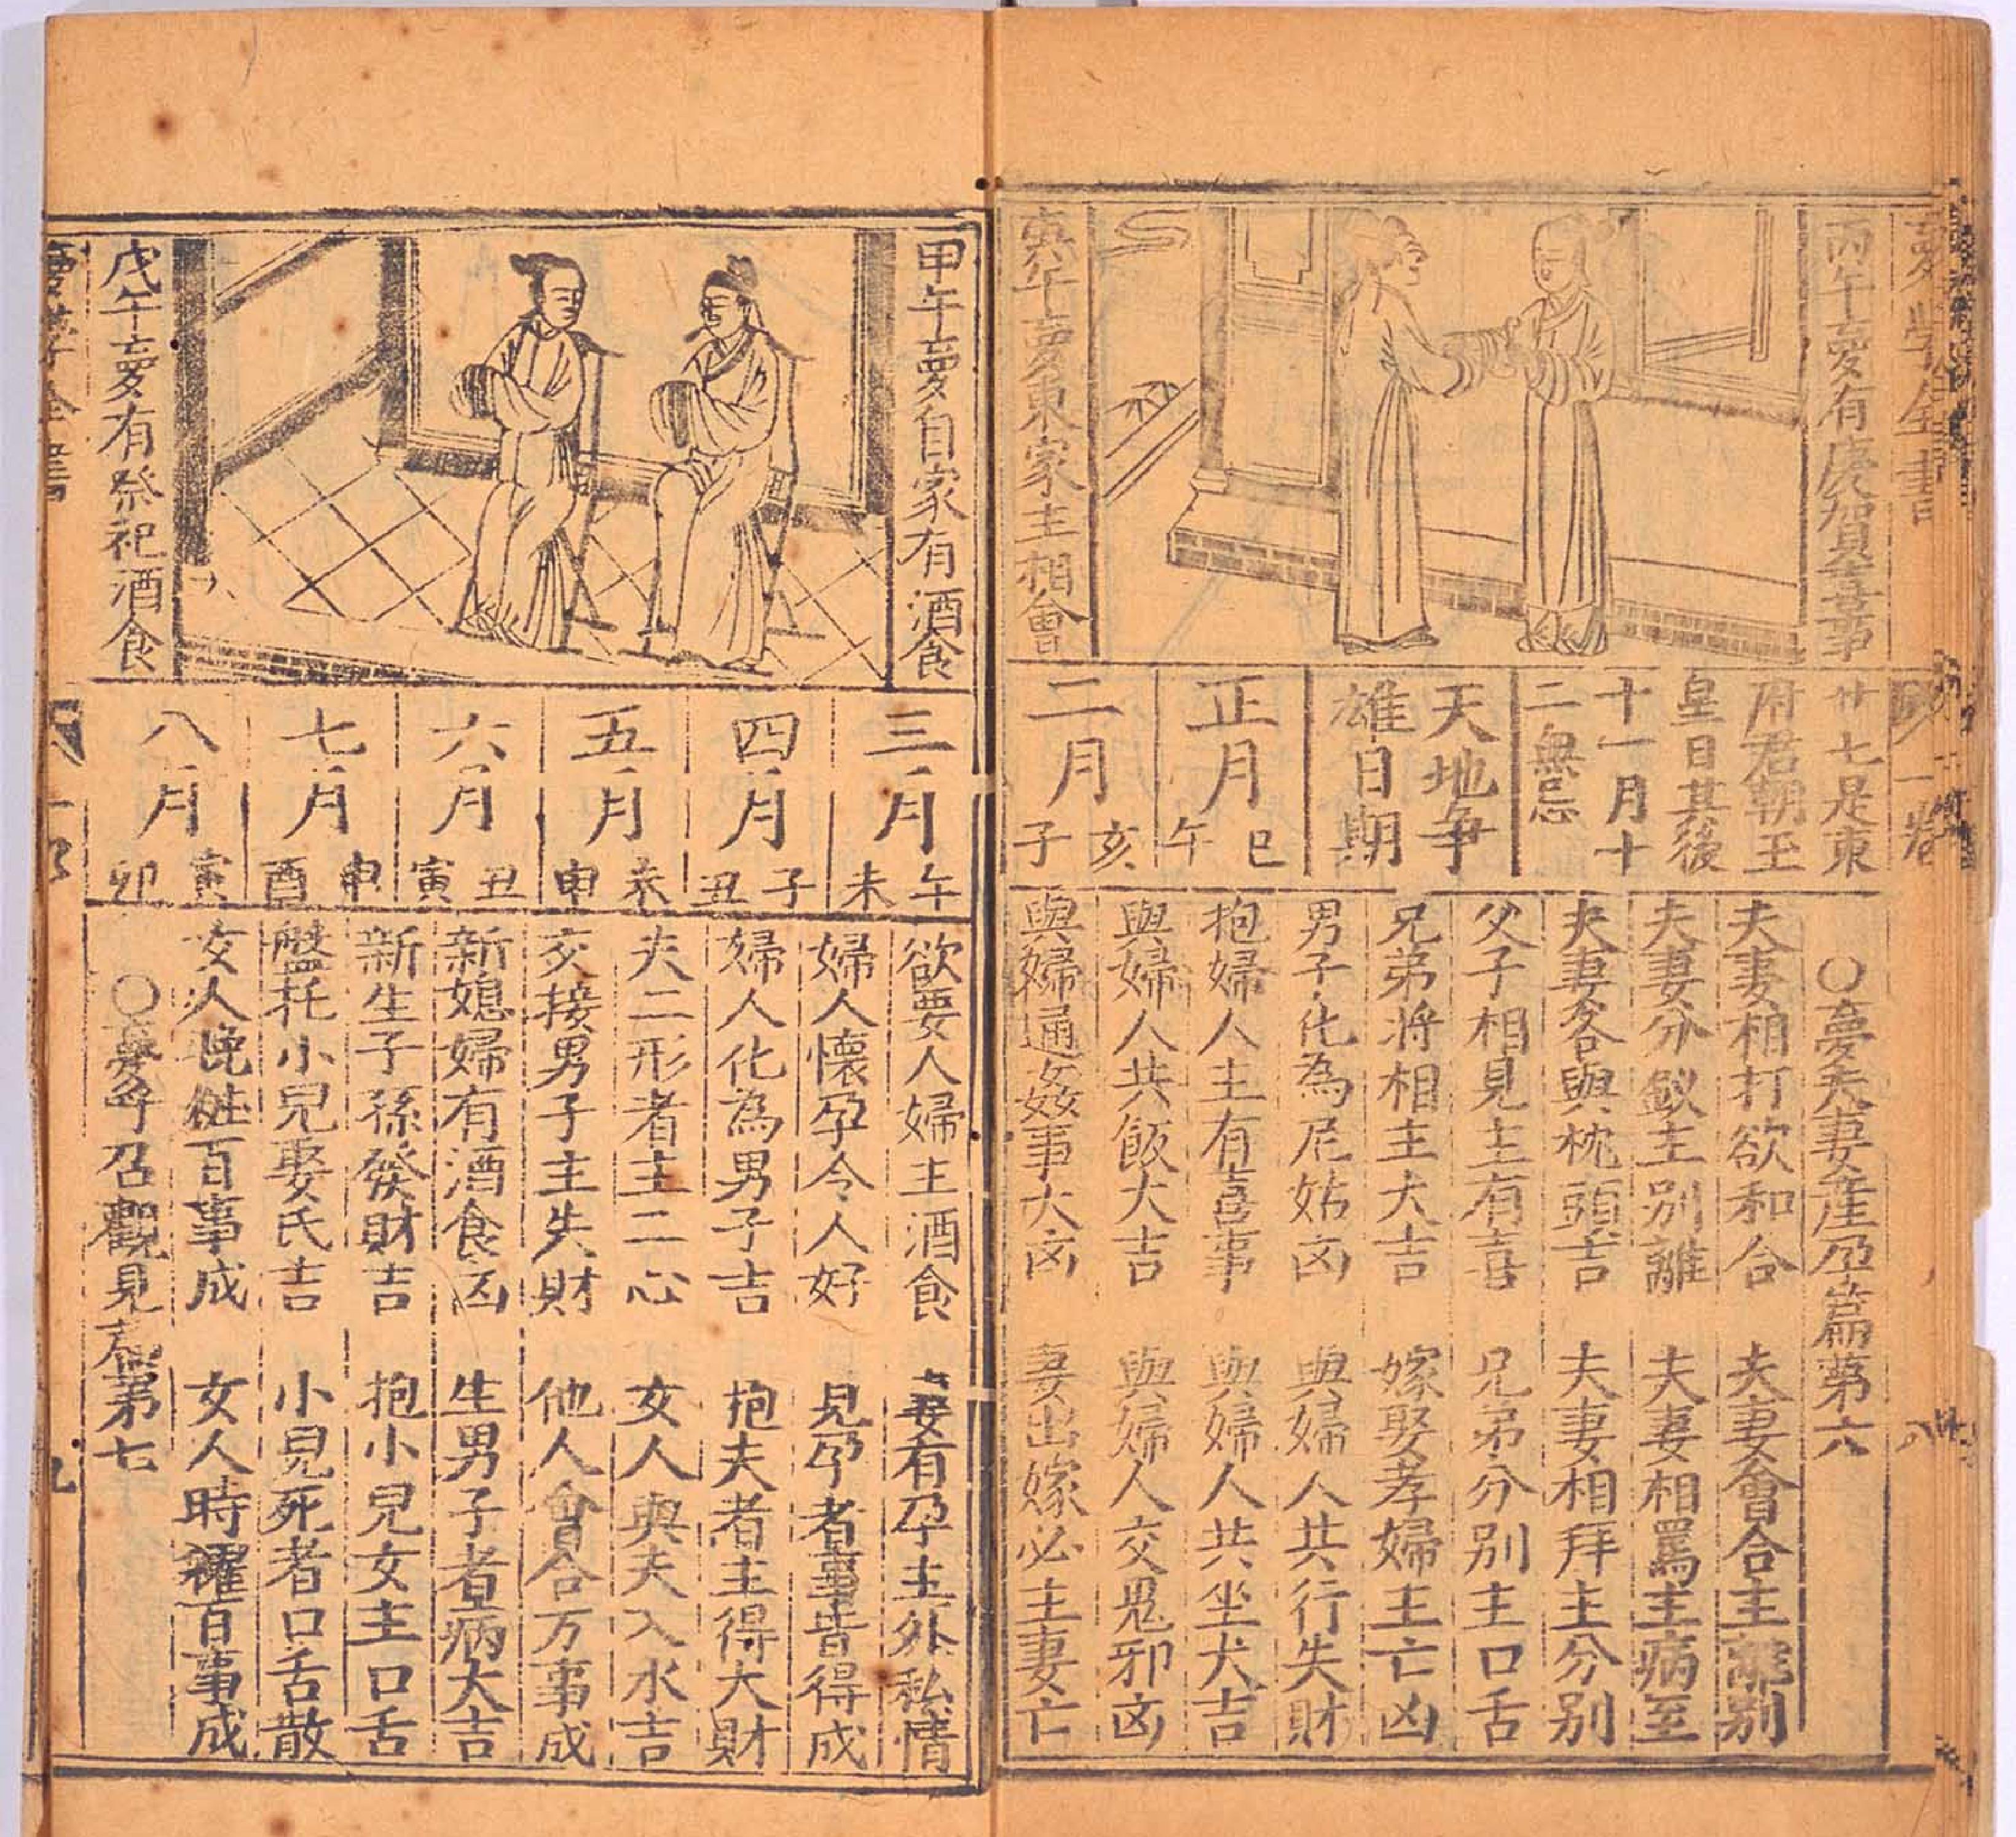 夢學全書
一卷
丙午夢有慶賀喜事
寅午夢東家主相會
廿七是東
府君朝王
皇日其後
十一月十
二無忌
天地争
雄日期
正月
巳午
二月
亥子
○夢夫妻産孕篇第六
夫妻相打欲和合
夫妻會合主離别
夫妻分釵主别離
夫妻相罵主病至
夫妻各與枕頭吉
夫妻相拜主分别
父子相見主有喜
兄弟分别主口舌
兄弟将相主大吉
嫁娶孝婦主亡凶
男子化為尼姑凶
與婦人共行失財
抱婦人主有喜事
與婦人共坐大吉
與婦人共飯大吉
與婦人交鬼邪凶
與婦通姦事大凶
妻出嫁必主妻亡
甲午夢自家有酒食
戊午夢有祭祀酒食
三月
午未
四月
子丑
五月
未申
六月
丑寅
七月
申酉
八月
寅卯
欲要人婦主酒食
妻有孕主外私情
婦人懐孕令人好
見孕者事皆得成
婦人化為男子吉
抱夫者主得大財
夫二形者主二心
女人與夫入水吉
交接男子主失財
他人會合万事成
新媳婦有酒食凶
生男子者病大吉
新生子孫發財吉
抱小兒女主口舌
盤托小兒娶氏吉
小兒死者口舌散
女人晩粧百事成
女人時襬百事成
○夢呼召觀見篇第七
夢學全書
九